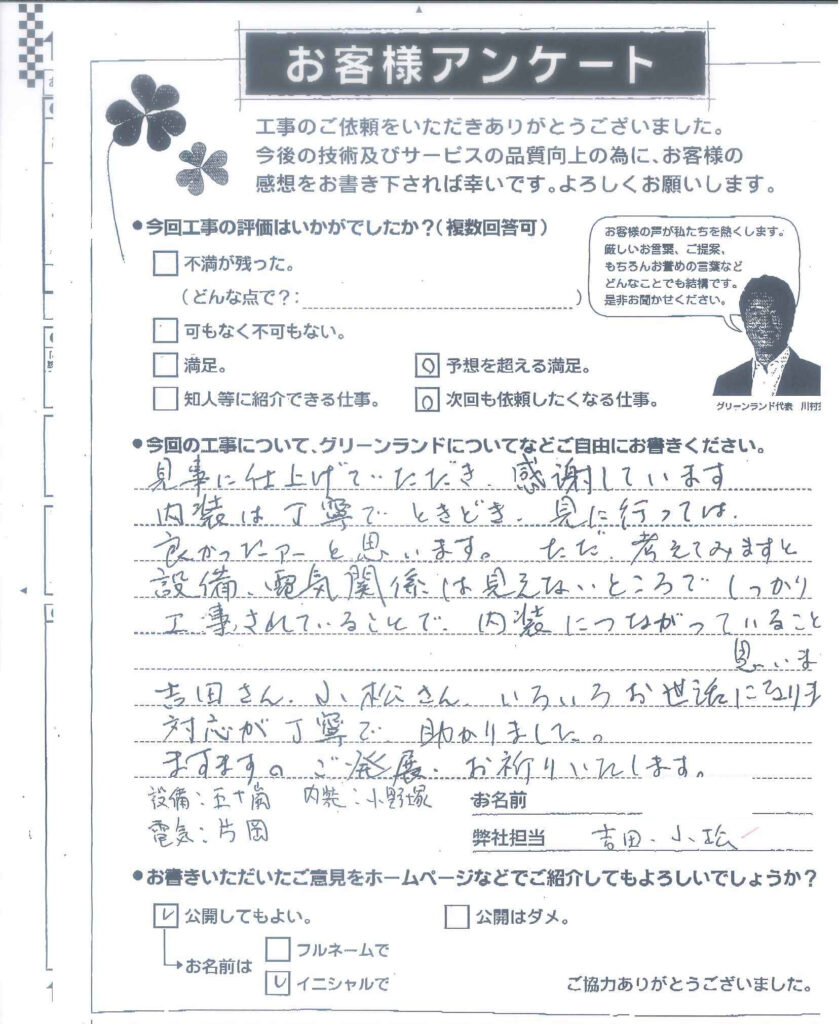 お客様アンケート
工事のご依頼をいただきありがとうございました。
今後の技術及びサービスの品質向上の為に、お客様の
感想をお書き下されば幸いです。よろしくお願いします。
●今回工事の評価はいかがでしたか？（複数回答可）
お客様の声が私たちを熱くします。
厳しいお言葉、ご提案、
もちろんお誉めの言葉など
どんなことでも結構です。
是非お聞かせください。
不満が残った。
（どんな点で？： ）
可もなく不可もない。
満足。
予想を超える満足。
知人等に紹介できる仕事。
次回も依頼したくなる仕事。
グリーンランド代表 川村
●今回の工事について、グリーンランドについてなどご自由にお書きください。
見事に仕上げていただき、感謝しています
内装は丁寧で ときどき、見に行っては、
良かったアーと思います。 ただ 考えてみますと
設備、電気関係は見えないところで しっかり
工事されていることで、内装につながっていること
思いま
吉田さん、小松さん、いろいろお世話になりま
対応が丁寧で 助かりました。
ますますの ご発展、お祈りいたします。
設備：五十嵐 内装：小野塚
お名前
電気：片岡
弊社担当 吉田・小松
●お書きいただいたご意見をホームページなどでご紹介してもよろしいでしょうか？
レ 公開してもよい。
公開はダメ。
お名前は
フルネームで
レ イニシャルで
ご協力ありがとうございました。